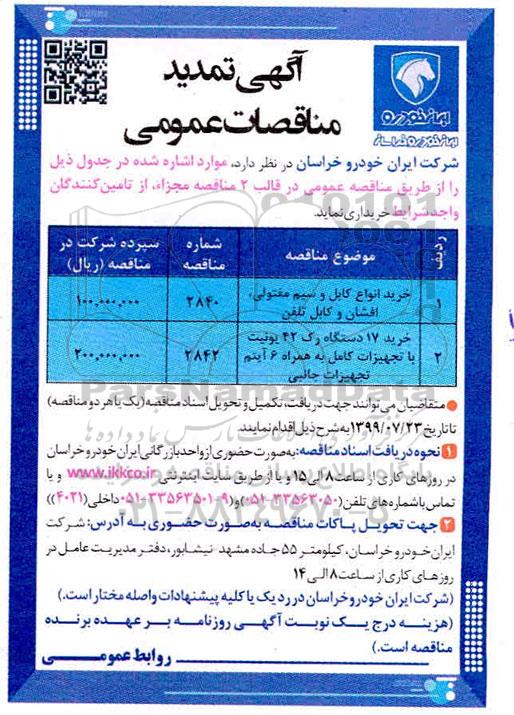 آگهی تمدید
مناقصات عمومی
ایران خودرو
ایران خودرو خراسان
شرکت ایران خودرو خراسان در نظر دارد، موارد اشاره شده در جدول ذیل
را از طریق مناقصه عمومی در قالب ۲ مناقصه مجزاء، از تامین‌کنندگان
واجد شرایط خریداری نماید.
ردیف | موضوع مناقصه | شماره مناقصه | سپرده شرکت در مناقصه (ریال)
۱ | خرید انواع کابل و سیم مفتولی، افشان و کابل تلفن | ۲۸۴۰ | ۱۰۰,۰۰۰,۰۰۰
۲ | خرید ۱۷ دستگاه رک ۴۲ یونیت با تجهیزات کامل به همراه ۶ آیتم تجهیزات جانبی | ۲۸۴۲ | ۲۰۰,۰۰۰,۰۰۰
متقاضیان می‌توانند جهت دریافت، تکمیل و تحویل اسناد مناقصه (یک یا هر دو مناقصه)
تا تاریخ ۱۳۹۹/۰۷/۲۳ به شرح ذیل اقدام نمایند.
۱ نحوه دریافت اسناد مناقصه: به صورت حضوری از واحد بازرگانی ایران خودرو خراسان
در روزهای کاری از ساعت ۸ الی ۱۵ و یا از طریق سایت اینترنتی www.ikkco.ir و یا
تماس با شماره های تلفن (۳۳۵۶۳۰۵۰-۰۵۱) و (۹-۳۳۵۶۳۵۰۱-۰۵۱ داخلی (۴۰۲۱))
۲ جهت تحویل پاکات مناقصه به صورت حضوری به آدرس: شرکت
ایران خودرو خراسان، کیلومتر ۵۵ جاده مشهد - نیشابور، دفتر مدیریت عامل در
روزهای کاری از ساعت ۸ الی ۱۴
(شرکت ایران خودرو خراسان در رد یک یا کلیه پیشنهادات واصله مختار است.)
(هزینه درج یک نوبت آگهی روزنامه بر عهده برنده
مناقصه است.)
روابط عمومی
ParsNamadData
۰۲۱-۸۸۳۴۹۶۷۰-۵